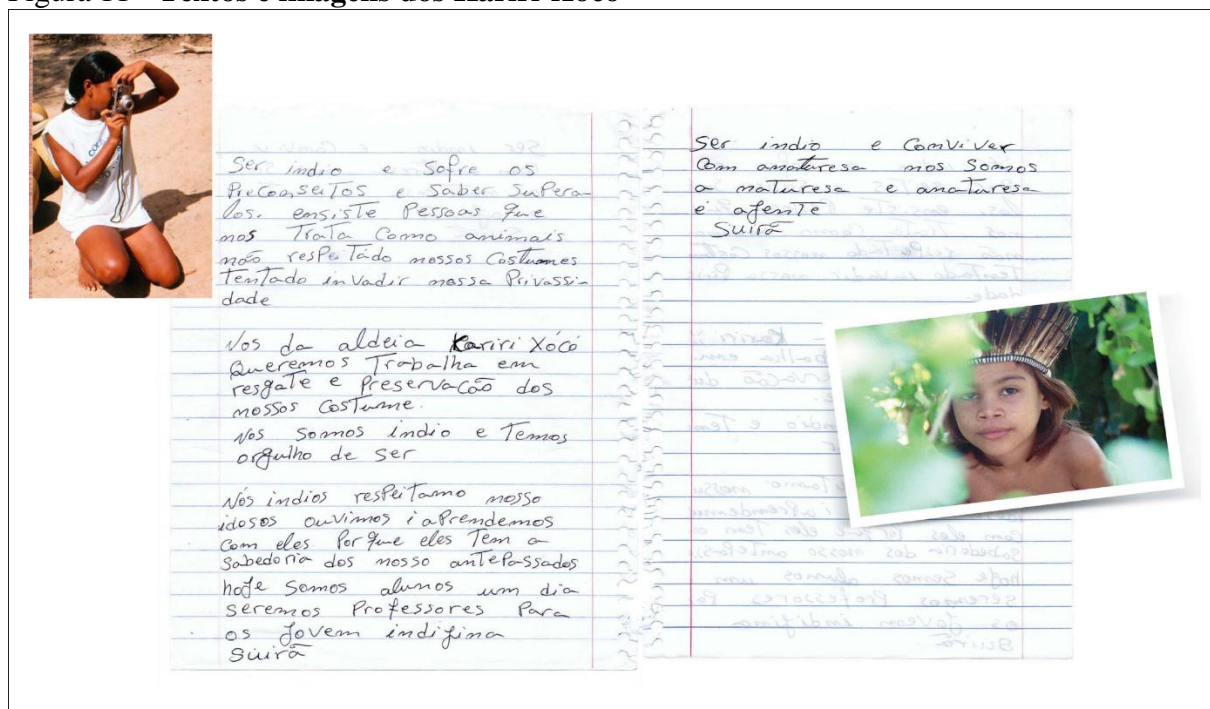 Ser indio e sofre os
Preconseitos e saber supera-
los. ensiste Pessoas que
nos Trata Como animais
não respeitado nossos Costumes
Tentado invadir nossa Privassi-
dade
Nos da aldeia Kariri Xócó
Queremos Trabalha em
resgate e Preservação dos
nossos Costume.
Nos somos indio e Temos
orgulho de ser
Nós indios respeitamo nosso
idosos ouvimos i aprendemos
Com eles Porque eles Tem a
Sabedoria dos nosso antepassados
hoje somos alunos um dia
seremos Professores Para
os Jovem indigina
Suirã
Ser indio e Comviver
Com anaturesa nos somos
a naturesa e anaturesa
é agente
Suirã